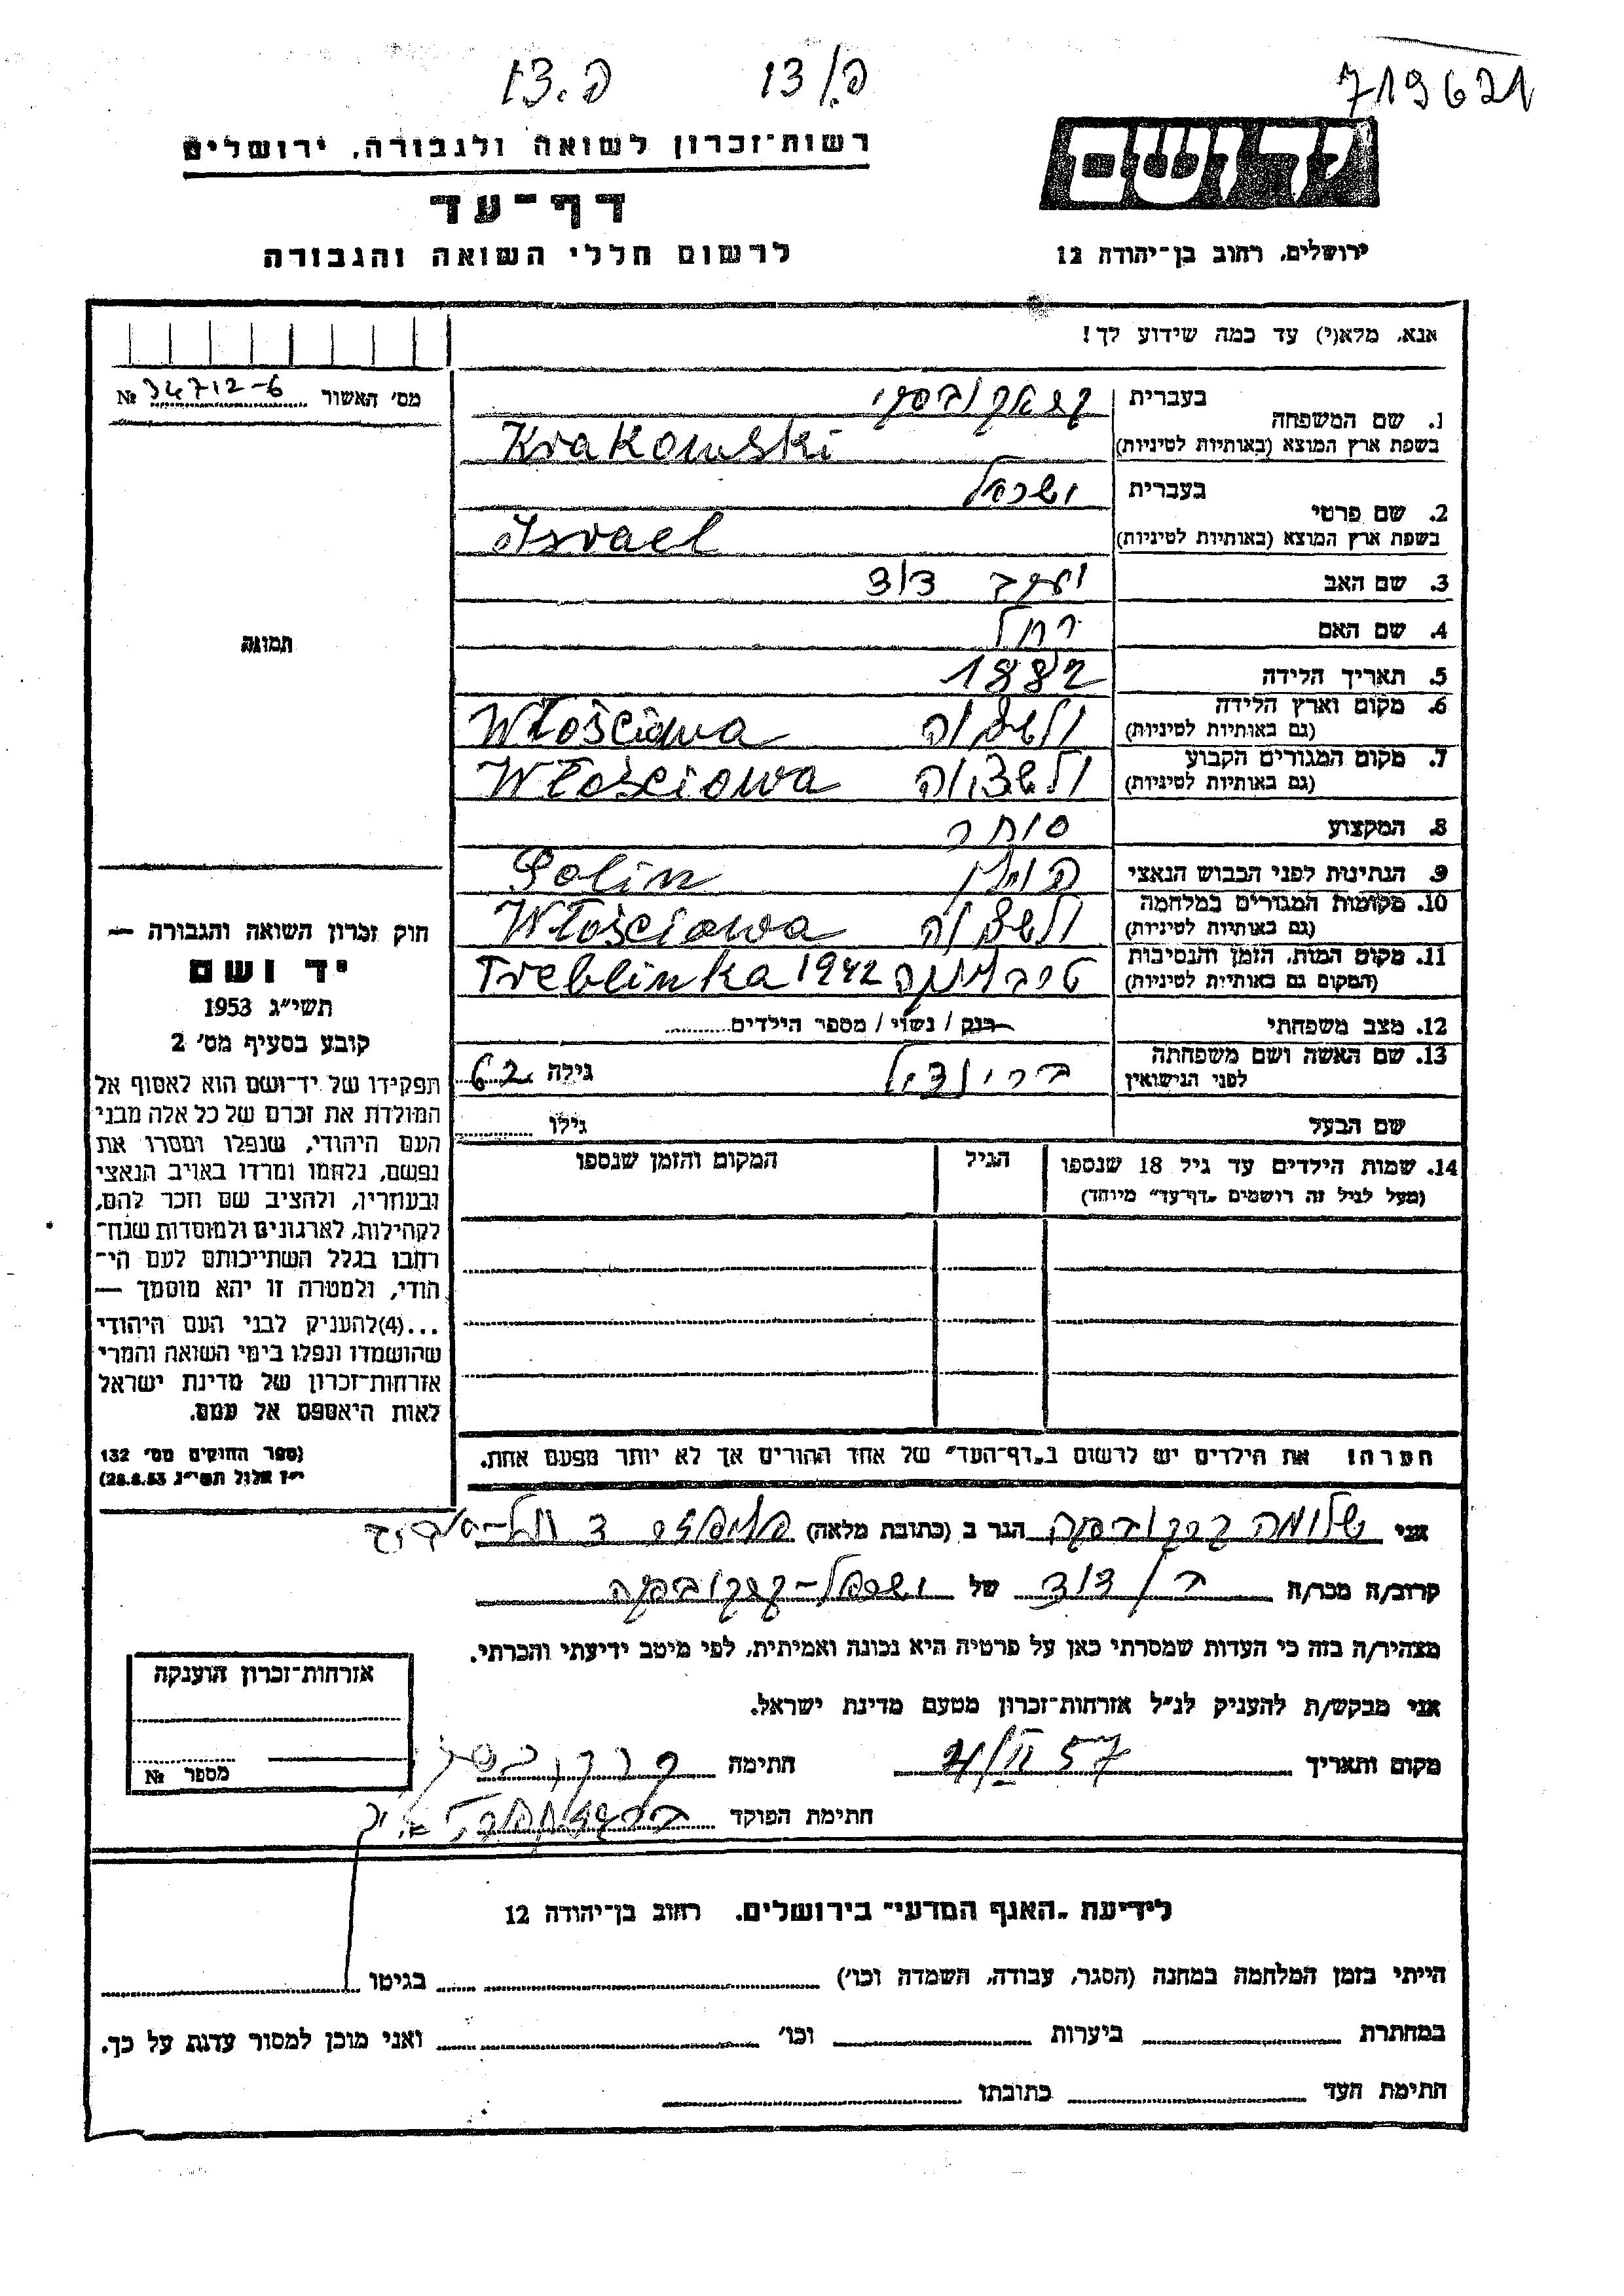 719621
13/פ.
פ.13
יד ושם
ירושלים, רחוב בן־יהודה 12
רשות־זכרון לשואה ולגבורה, ירושלים
דף־עד
לרשום חללי השואה והגבורה
אנא, מלא(י) עד כמה שידוע לך!
מס׳ האשור 34712-6 №
1. שם המשפחה
בעברית קראקובסקי
בשפת ארץ המוצא (באותיות לטיניות) Krakowski
2. שם פרטי
בעברית ישראל
בשפת ארץ המוצא (באותיות לטיניות) Israel
3. שם האב יעקב דוד
4. שם האם רחל
5. תאריך הלידה 1882
6. מקום וארץ הלידה
(גם באותיות לטיניות) Włościowa
7. מקום המגורים הקבוע
(גם באותיות לטיניות) Włościowa
8. המקצוע סוחר
9. הנתינות לפני הכבוש הנאצי פולין Polin
10. מקומות המגורים במלחמה
(גם באותיות לטיניות) Włościowa
11. מקום המות, הזמן והנסיבות
(המקום גם באותיות לטיניות) טרבלינקה 1942 Treblinka
12. מצב משפחתי רנק / נשוי / מספר הילדים
13. שם האשה ושם משפחתה
לפני הנישואין בריינדל גילה 62
שם הבעל גילו
14. שמות הילדים עד גיל 18 שנספו
(מעל לגיל זה רושמים „דף־עד״ מיוחד)
הגיל
המקום והזמן שנספו
הערה! את הילדים יש לרשום ב„דף־העד״ של אחד ההורים אך לא יותר מפעם אחת.
תמונה
חוק זכרון השואה והגבורה —
יד ושם
תשי״ג 1953
קובע בסעיף מס׳ 2
תפקידו של יד־ושם הוא לאסוף אל
המולדת את זכרם של כל אלה מבני
העם היהודי, שנפלו ומסרו את
נפשם, נלחמו ומרדו באויב הנאצי
ובעוזריו, ולהציב שם וזכר להם,
לקהילות, לארגונים ולמוסדות שנח־
רבו בגלל השתייכותם לעם הי־
הודי, ולמטרה זו יהא מוסמך —
...(4)להעניק לבני העם היהודי
שהושמדו ונפלו בימי השואה והמרי
אזרחות־זכרון של מדינת ישראל
לאות היאספם אל עמם.
(ספר החוקים מס׳ 132
י״ז אלול תשי״ג 28.8.53)
אני שלומה קרקובסקה הגר ב (כתובת מלאה) תל-אביב
קרוב/ה מכר/ה בן דוד של ישראל-קרקובסקה
מצהיר/ה בזה כי העדות שמסרתי כאן על פרטיה היא נכונה ואמיתית, לפי מיטב ידיעתי והכרתי.
אני מבקש/ת להעניק לנ״ל אזרחות־זכרון מטעם מדינת ישראל.
מקום ותאריך 57 חתימה
חתימת הפוקד
אזרחות־זכרון הוענקה
מספר №
לידיעת „האגף המדעי״ בירושלים. רחוב בן־יהודה 12
הייתי בזמן המלחמה במחנה (הסגר, עבודה, השמדה וכו׳) בגיטו
במחתרת ביערות וכו׳ ואני מוכן למסור עדות על כך.
חתימת העד כתובתו